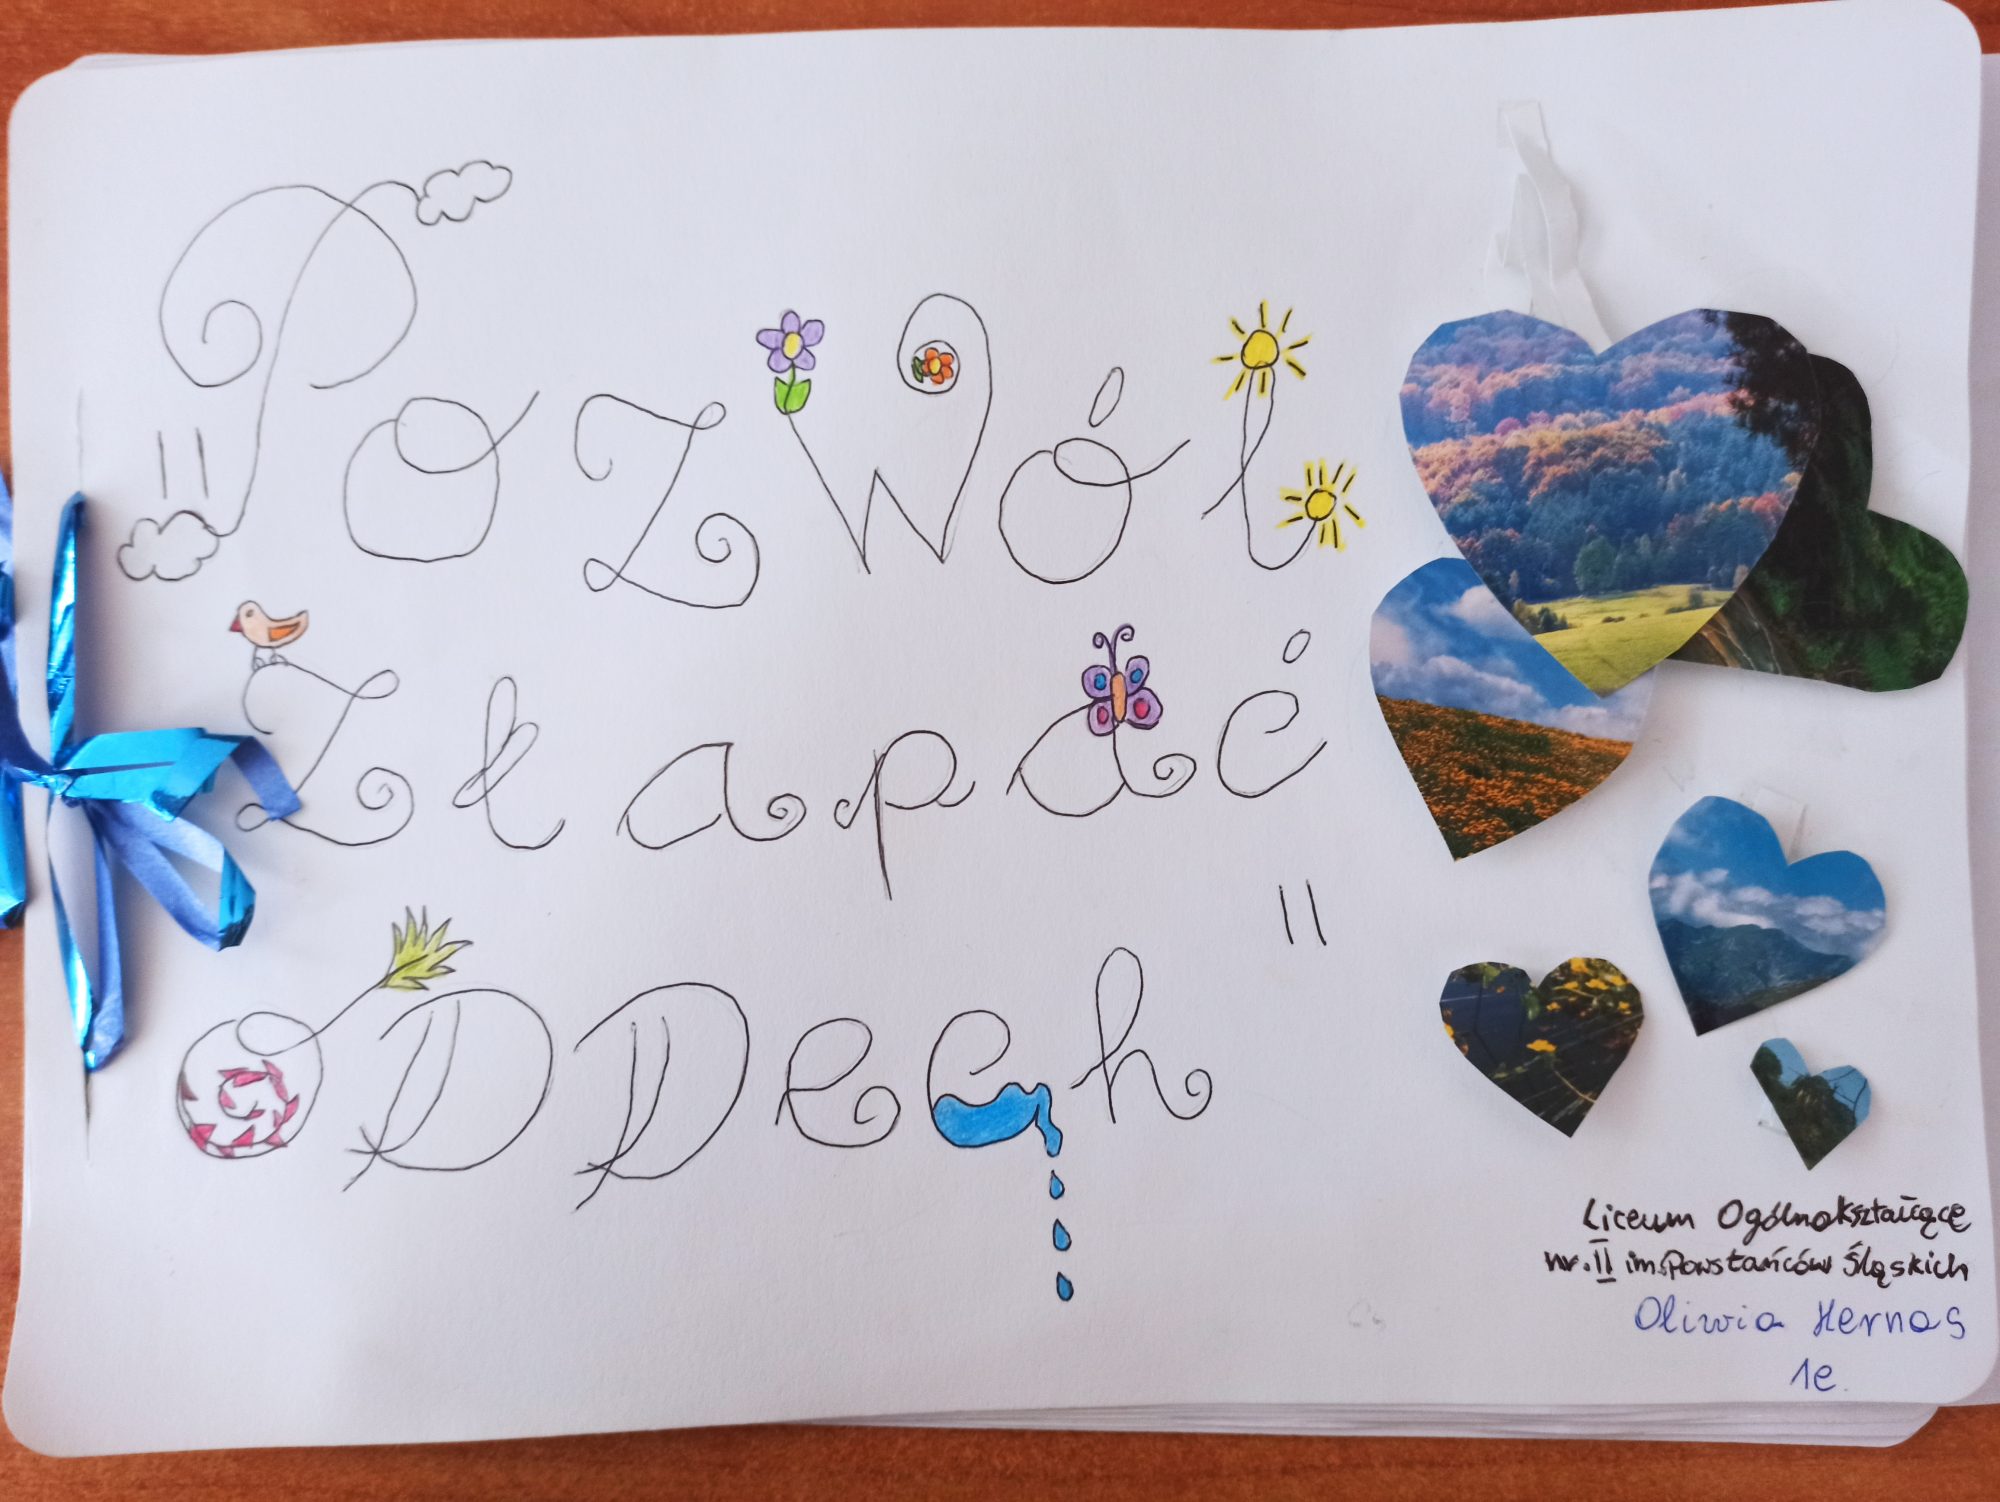 "PozWól
Złapać
oDDech"
Liceum Ogólnokształcące
nr. II im. Powstańców Śląskich
Oliwia Hernas
1e.